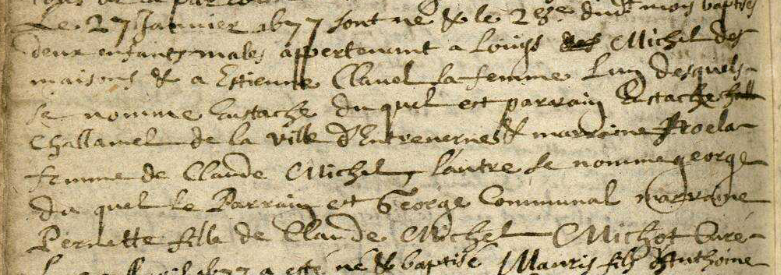 Le 27 Janvier 1677 sont né & le 28e dudt mois baptisés
deux enfants males appertenant a Louys Michel des
maisons & a Estienne Clavel sa femme L'un desquels
se nomme Eustache duquel est parrain Eustache
Challamel de la ville d'Entrevernes & marraine
femme de Claude Michel, l'autre se nomme george
du quel le Parrain est George Communal marraine
Pernette fille de Claude Michel Michot Curé
a esté né & baptisé Mauris fils d'Anthoine